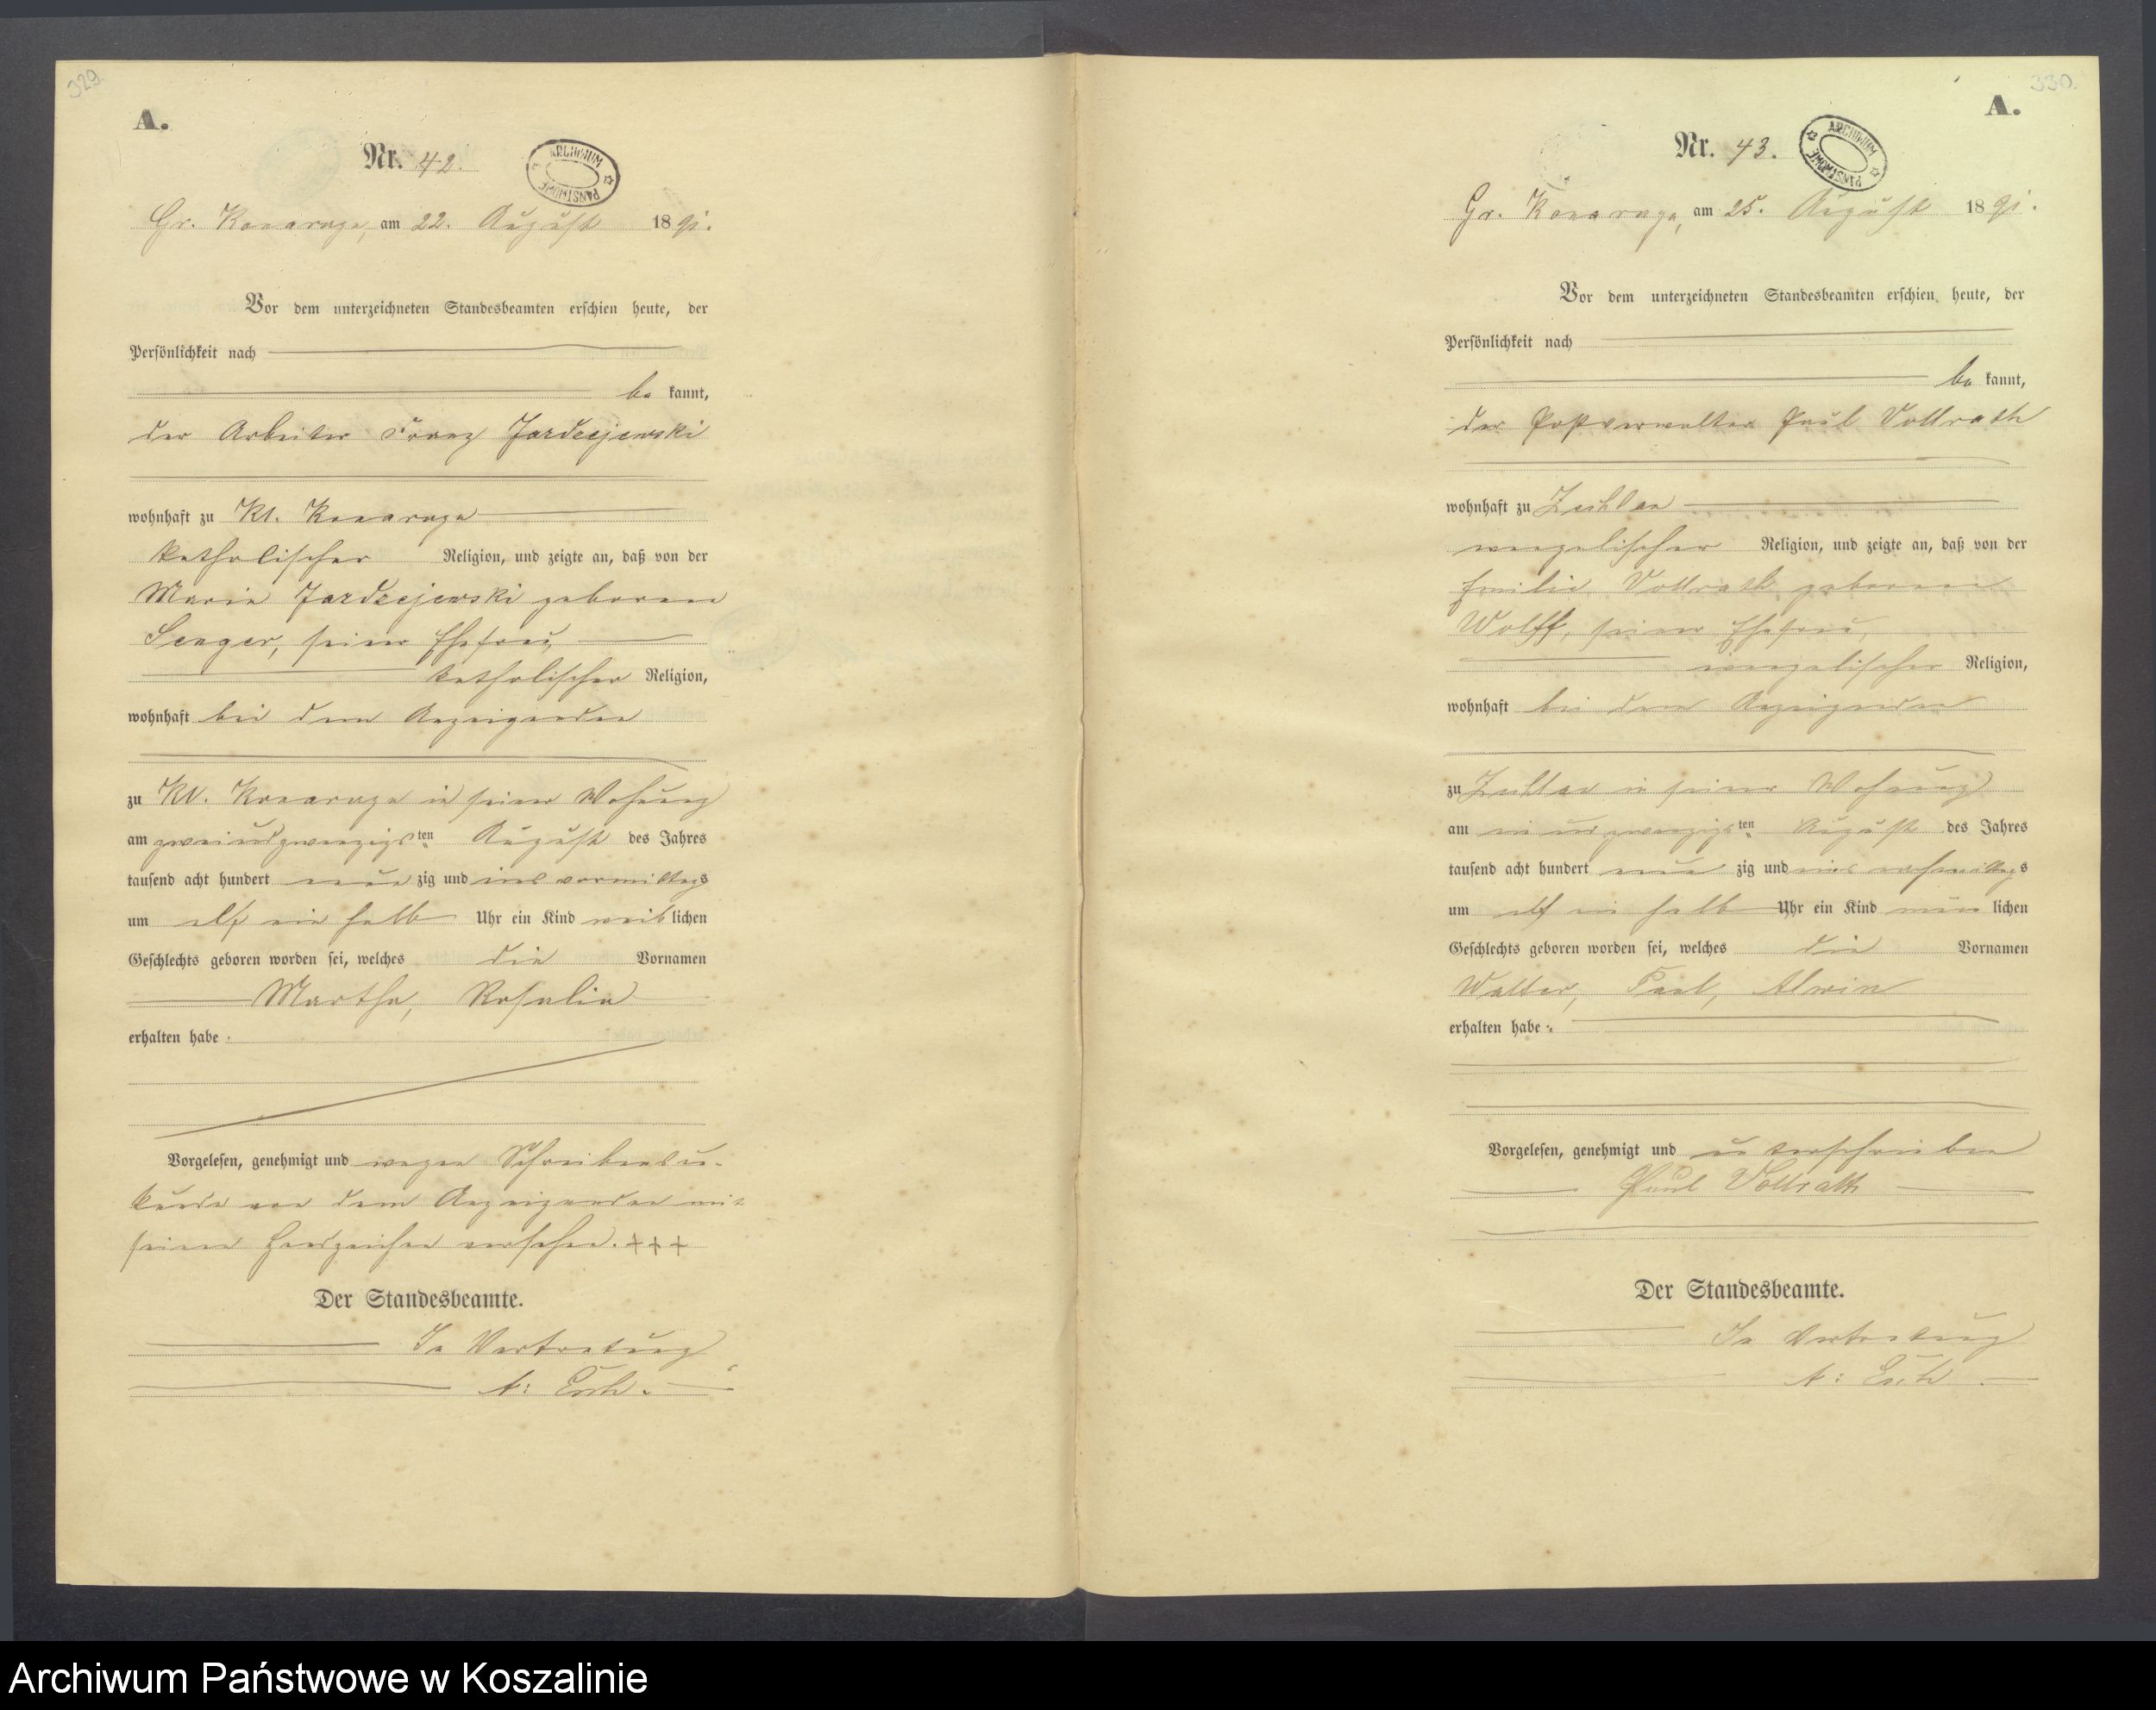 329.
A.
Nr. 42.
ARCHIWUM PAŃSTWOWE
Gr. Konarzyn, am 22. August 1891.
Vor dem unterzeichneten Standesbeamten erschien heute, der
Persönlichkeit nach
be kannt,
der Arbeiter Franz Jardzejewski
wohnhaft zu Kl. Konarzyn
katholischer Religion, und zeigte an, daß von der
Maria Jardzejewski geborene
Senger, seiner Ehefrau,
katholischer Religion,
wohnhaft bei dem Anzeigenden
zu Kl. Konarzyn in seiner Wohung
am zweiundzwanzigsten August des Jahres
tausend acht hundert neun zig und eins vormittags
um elf ein halb Uhr ein Kind weib lichen
Geschlechts geboren worden sei, welches die Vornamen
Martha, Rosalia
erhalten habe.
Vorgelesen, genehmigt und wegen Schreibensun-
kunde von dem Anzeigenden mit
seinem Handzeichen versehen. +++
Der Standesbeamte.
In Vertretung
A:
330.
A.
Nr. 43.
ARCHIWUM PAŃSTWOWE
Gr. Konarzyn, am 25. August 1891.
Vor dem unterzeichneten Standesbeamten erschien heute, der
Persönlichkeit nach
be kannt,
der Postverwalter Paul Vollrath
wohnhaft zu
evangelischer Religion, und zeigte an, daß von der
Emilie Vollrath geborene
Wolff, seiner Ehefrau,
evangelischer Religion,
wohnhaft bei dem Anzeigenden
zu in seiner Wohung
am ein und zwanzigsten August des Jahres
tausend acht hundert neun zig und eins nachmittags
um elf ein halb Uhr ein Kind män lichen
Geschlechts geboren worden sei, welches die Vornamen
Walter, Paul, Alwin
erhalten habe.
Vorgelesen, genehmigt und unterschrieben
Paul Vollrath
Der Standesbeamte.
In Vertretung
A:
Archiwum Państwowe w Koszalinie